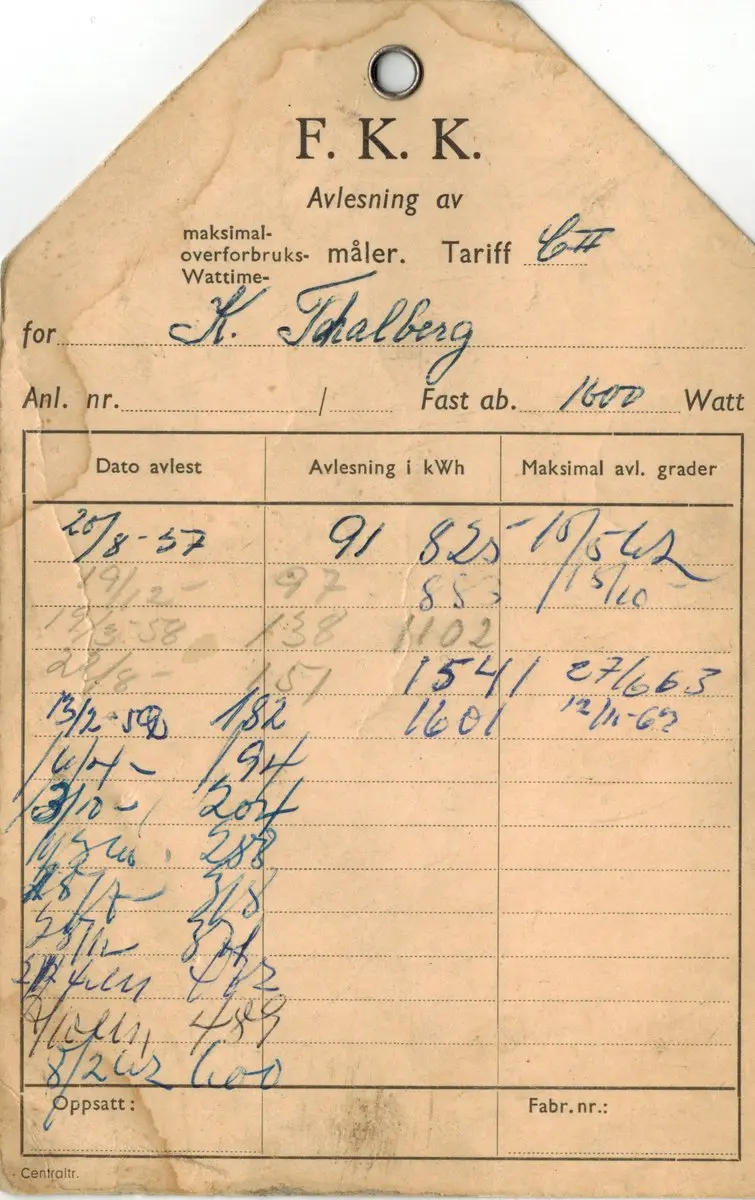 F. K. K.
Avlesning av
maksimal-
overforbruks- måler. Tariff C II
Wattime-
for K. Thalberg
Anl. nr. / Fast ab. 1600 Watt
Dato avlest Avlesning i kWh Maksimal avl. grader
20/8-57 91 825 10/5 62
19/12- 97 883 15/10 -
19/3-58 138 1102
22/8- 151 1541 27/6 63
13/2-59 182 1601 12/11-63
16/4- 194
13/10- 204
288
318
371
489
8/2 62 600
Oppsatt: Fabr. nr.:
Centraltr.